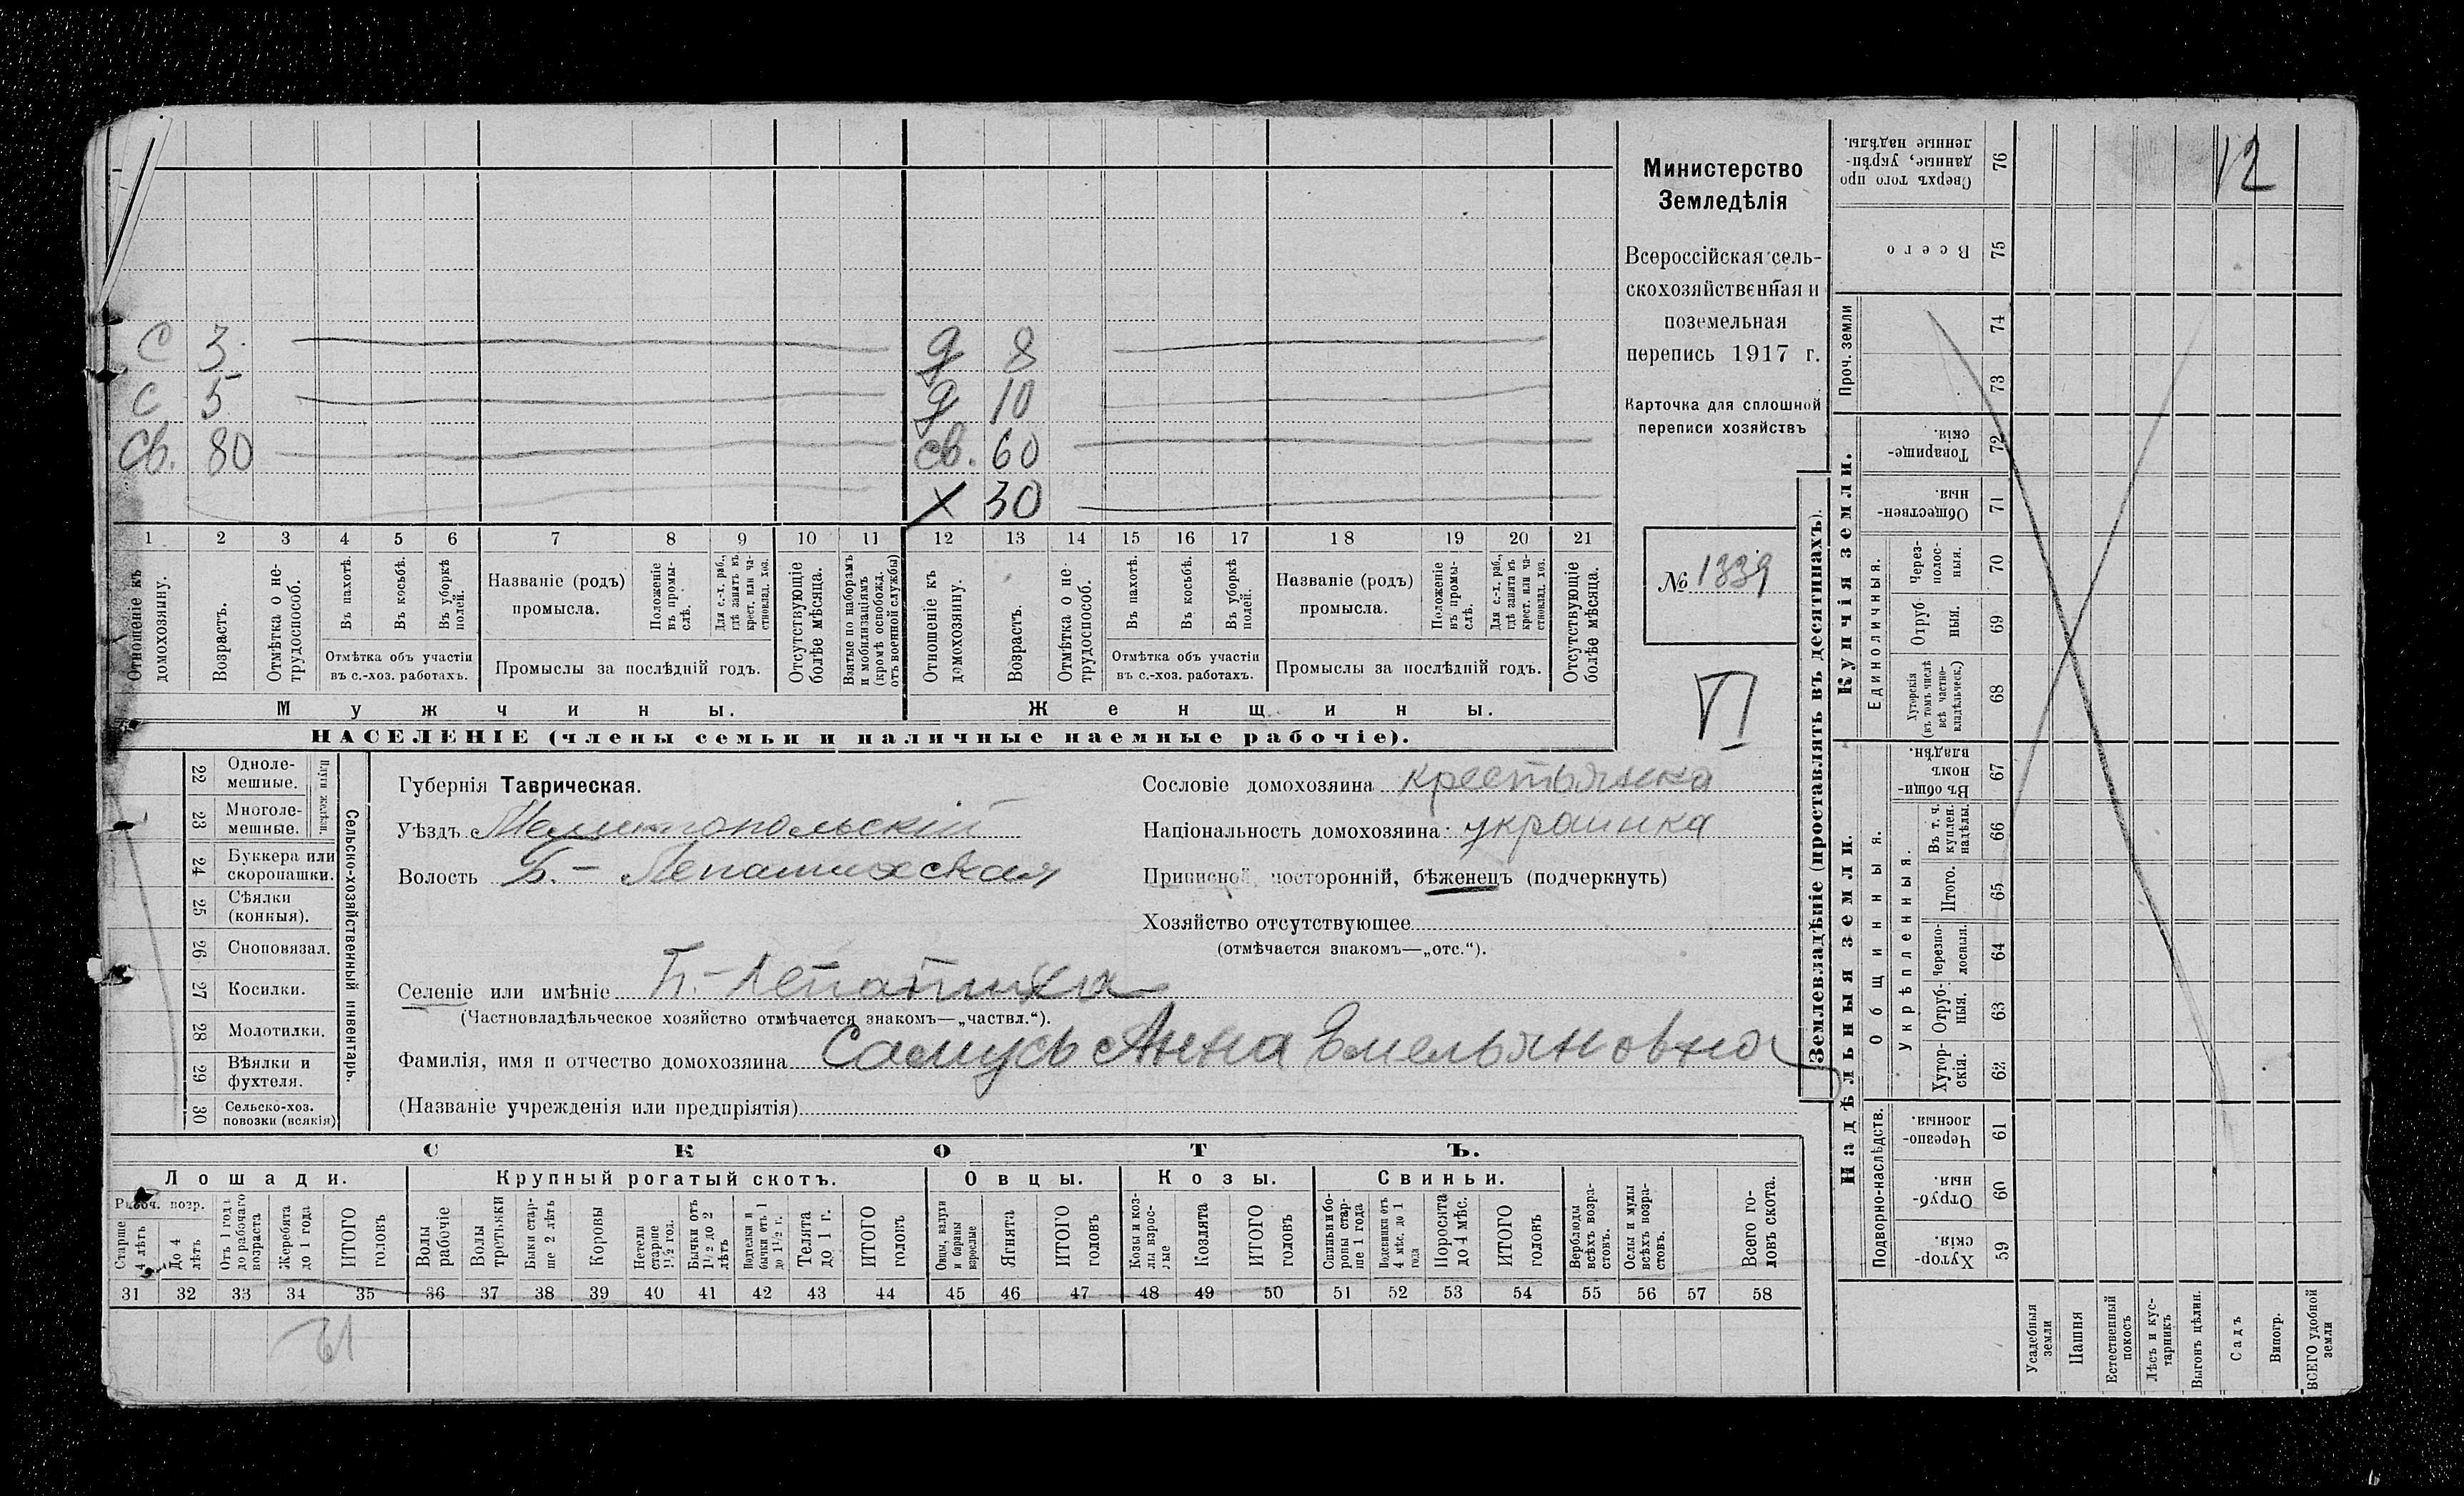 12
Министерство
Земледѣлія
Всероссійская сель-
скохозяйственная и
поземельная
перепись 1917 г.
Карточка для сплошной
переписи хозяйствъ
№ 1339
VI
С 3 д 8
С 5 д 10
Св. 80 св. 60
х 30
1 2 3 4 5 6 7 8 9 10 11 12 13 14 15 16 17 18 19 20 21
Отношеніе къ домохозяину.
Возрастъ.
Отмѣтка о не-трудоспособ.
Въ пахотѣ.
Въ косьбѣ.
Въ уборкѣ полей.
Отмѣтка объ участіи
въ с.-хоз. работахъ.
Названіе (родъ)
промысла.
Положеніе въ промы-слѣ.
Для с.-х. раб., гдѣ занятъ въ крест. или ча-стновлад. хоз.
Промыслы за послѣдній годъ.
Отсутствующіе болѣе мѣсяца.
Взятые по наборамъ и мобилизаціямъ (кромѣ освобожд. отъ военной службы)
Отношеніе къ домохозяину.
Возрастъ.
Отмѣтка о не-трудоспособ.
Въ пахотѣ.
Въ косьбѣ.
Въ уборкѣ полей.
Отмѣтка объ участіи
въ с.-хоз. работахъ.
Названіе (родъ)
промысла.
Положеніе въ промы-слѣ.
Для с.-х. раб., гдѣ занята въ крест. или ча-стновлад. хоз.
Промыслы за послѣдній годъ.
Отсутствующіе болѣе мѣсяца.
Мужчины. Женщины.
НАСЕЛЕНІЕ (члены семьи и наличные наемные рабочіе).
Сельско-хозяйственный инвентарь.
22 Одноле-мешные.
23 Многоле-мешные.
24 Буккера или скоропашки.
25 Сѣялки (конныя).
26 Сноповязал.
27 Косилки.
28 Молотилки.
29 Вѣялки и фухтеля.
30 Сельско-хоз. повозки (всякія)
Губернія Таврическая.
Уѣздъ Мелитопольскій
Волость Б.-Лепатихская
Селеніе или имѣніе Б.-Лепатиха
(Частновладѣльческое хозяйство отмѣчается знакомъ—„частвл.“).
Фамилія, имя и отчество домохозяина Самусь Анна Емельяновна
(Названіе учрежденія или предпріятія)
Сословіе домохозяина крестьянка
Національность домохозяина украинка
Приписной, посторонній, бѣженецъ (подчеркнуть)
Хозяйство отсутствующее
(отмѣчается знакомъ—„отс.“).
СКОТЪ.
Лошади. Крупный рогатый скотъ. Овцы. Козы. Свиньи.
Рабоч. возр.
Старше 4 лѣтъ
До 4 лѣтъ
Отъ 1 года до рабочаго возраста
Жеребята до 1 года
ИТОГО головъ
Волы рабочіе
Волы третьяки
Быки стар-ше 2 лѣтъ
Коровы
Нетели старше 1½ год.
Бычки отъ 1½ до 2 лѣтъ
Подтелки и бычки отъ 1 до 1½ г.
Телята до 1 г.
ИТОГО головъ
Овцы, валухи и бараны взрослые
Ягнята
ИТОГО головъ
Козы и коз-лы взрос-лые
Козлята
ИТОГО головъ
Свиньи и бо-ровы стар-ше 1 года
Подсвинки отъ 4 мѣс. до 1 года
Поросята до 4 мѣс.
ИТОГО головъ
Верблюды всѣхъ возра-стовъ.
Ослы и мулы всѣхъ возра-стовъ.
Всего го-ловъ скота.
31 32 33 34 35 36 37 38 39 40 41 42 43 44 45 46 47 48 49 50 51 52 53 54 55 56 57 58
Землевладѣніе (проставлять въ десятинахъ).
Купчія земли.
Надѣльныя земли.
Проч. земли
Единоличныя.
Общинныя.
Укрѣпленныя.
Подворно-наслѣдств.
76 Сверхъ того про данные, укрѣп-ленные надѣлы.
75 Всего
74
73
72 Товарище-скія.
71 Обществен-ныя.
70 Через-полос-ныя.
69 Отруб-ныя.
68 Хуторскія (въ томъ числѣ всѣ частно-владѣльческ.)
67 Въ общи-номъ владѣн.
66 Въ т. ч. куплен. надѣлы.
65 Итого.
64 Черезпо-лосныя.
63 Отруб-ныя.
62 Хутор-скія.
61 Черезпо-лосныя.
60 Отруб-ныя.
59 Хутор-скія.
Усадебныя земли
Пашня
Естественный покосъ
Лѣсъ и кус-тарникъ
Выгонъ цѣлин.
Садъ
Виногр.
ВСЕГО удобной земли